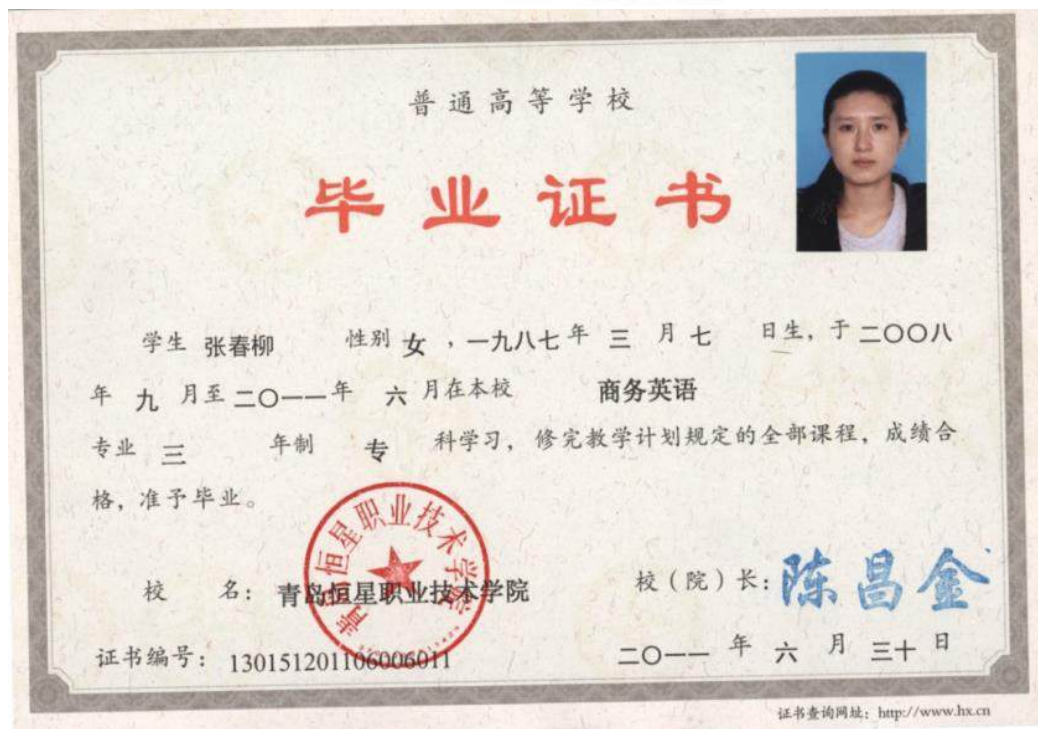 普通高等学校
毕业证书
学生 张春柳 性别 女 ，一九八七 年 三 月 七 日生，于 二〇〇八
年 九 月至 二〇一一 年 六 月在本校 商务英语
专业 三 年制 专 科学习，修完教学计划规定的全部课程，成绩合
格，准予毕业。
青岛恒星职业技术学院
校 名：青岛恒星职业技术学院 校（院）长：陈昌金
证书编号：130151201106006011 二〇一一 年 六 月 三十 日
证书查询网址：http://www.hx.cn